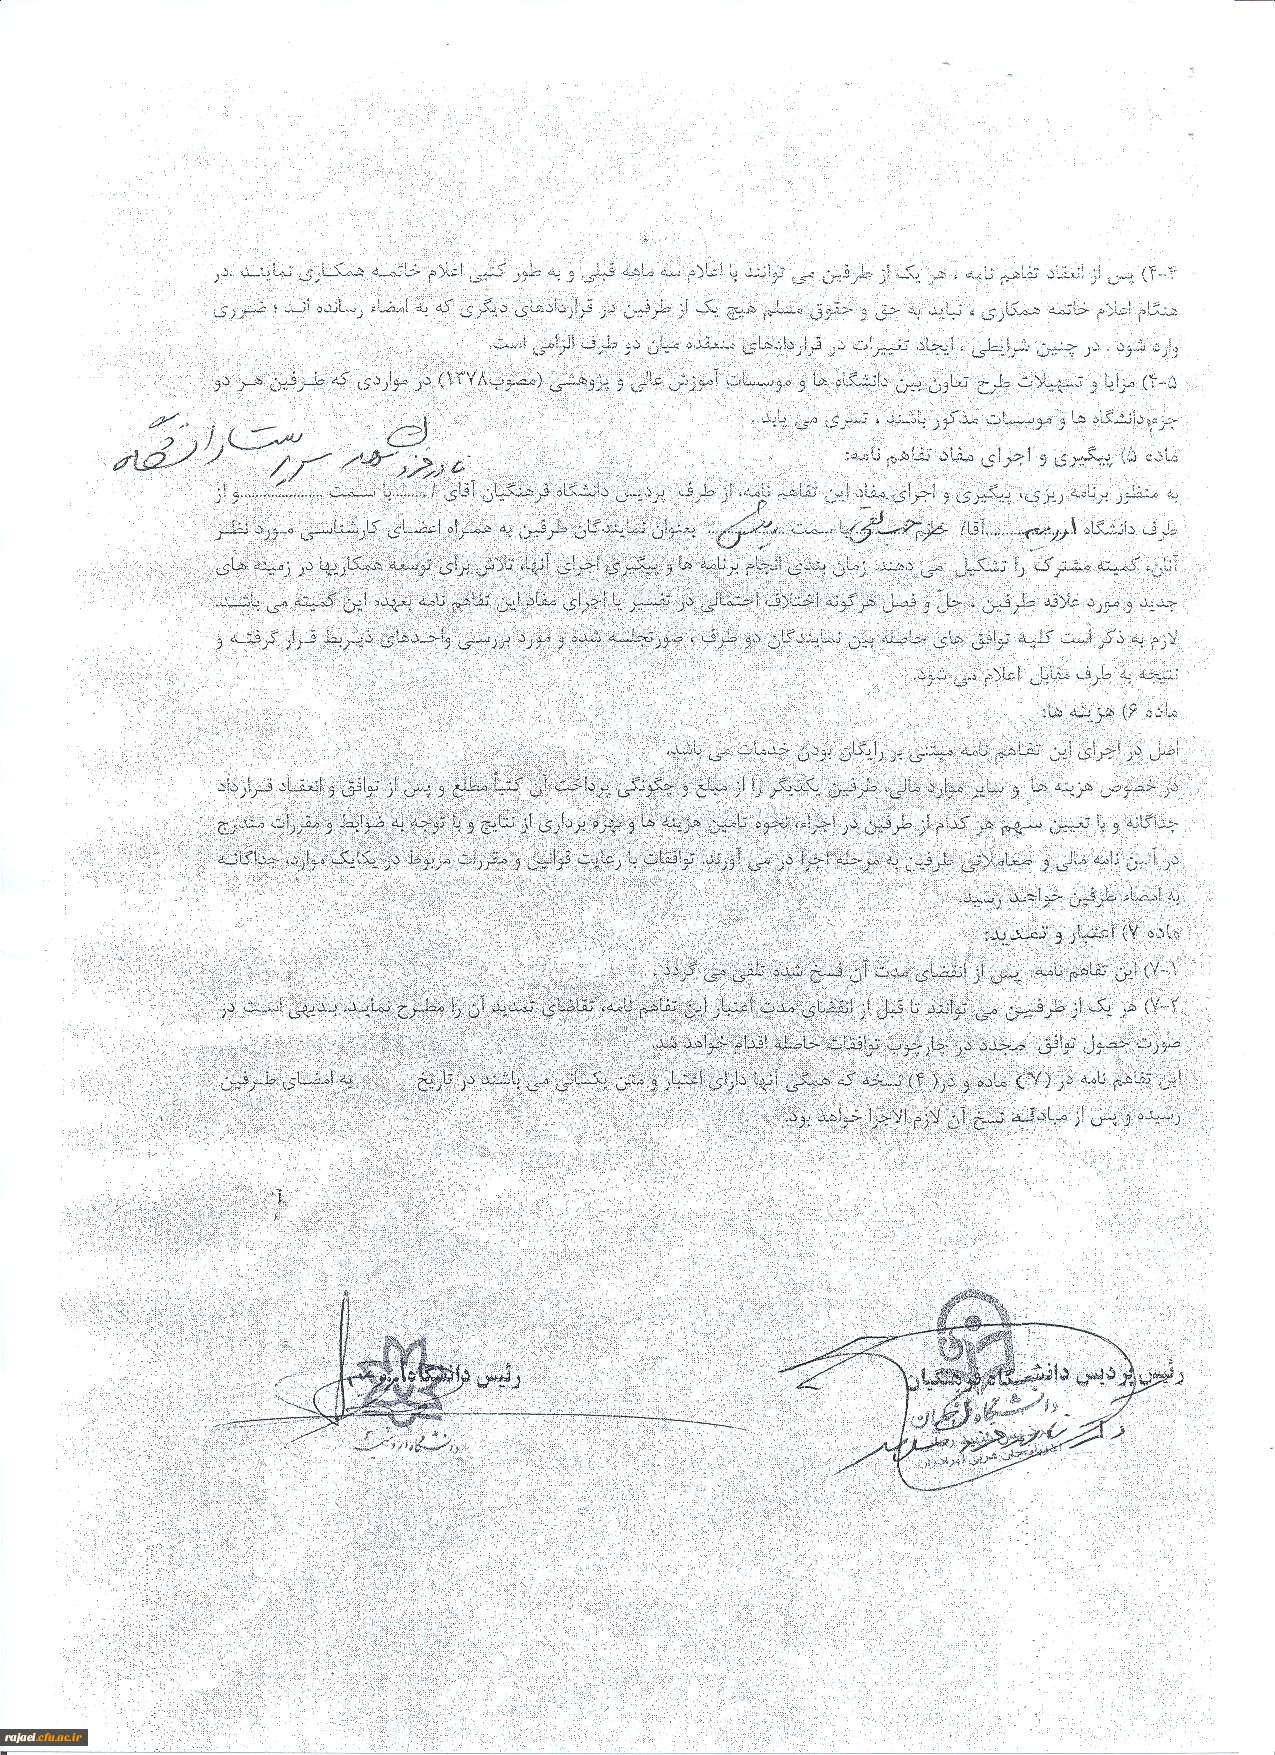 ۴-۴) پس از انعقاد تفاهم نامه ، هر یک از طرفین می توانند با اعلام سه ماهه قبلی و به طور کتبی اعلام خاتمه همکاری نمایند .در
هنگام اعلام خاتمه همکاری ، نباید به حق و حقوق مسلم هیچ یک از طرفین در قراردادهای دیگری که به امضاء رسانده اند ؛ ضرری
وارد شود . در چنین شرایطی ، ایجاد تغییرات در قراردادهای منعقده میان دو طرف الزامی است.
۴-۵) مزایا و تسهیلات طرح تعاون بین دانشگاه ها و موسسات آموزش عالی و پژوهشی (مصوب۱۳۷۸) در مواردی که طرفین هر دو
جزء دانشگاه ها و موسسات مذکور باشند ، تسری می یابد .
ماده ۵) پیگیری و اجرای مفاد تفاهم نامه:
به منظور برنامه ریزی، پیگیری و اجرای مفاد این تفاهم نامه، از طرف پردیس دانشگاه فرهنگیان آقای /.......با سمت ...................و از
طرف دانشگاه ...........آقا/ با سمت ........... بعنوان نمایندگان طرفین به همراه اعضای کارشناسی مورد نظر
آنان، کمیته مشترک را تشکیل می دهند. زمان بندی انجام برنامه ها و پیگیری اجرای آنها، تلاش برای توسعه همکاریها در زمینه های
جدید و مورد علاقه طرفین ، حلّ و فصل هرگونه اختلاف احتمالی در تفسیر یا اجرای مفاد این تفاهم نامه بعهده این کمیته می باشد.
لازم به ذکر است کلیه توافق های حاصله بین نمایندگان دو طرف ، صورتجلسه شده و مورد بررسی واحدهای ذیربط قرار گرفته و
نتیجه به طرف مقابل اعلام می شود.
ماده ۶) هزینه ها:
اصل در اجرای این تفاهم نامه مبتنی بر رایگان بودن خدمات می باشد.
در خصوص هزینه ها و سایر موارد مالی، طرفین یکدیگر را از مبلغ و چگونگی پرداخت آن کتباً مطلع و پس از توافق و انعقاد قرارداد
جداگانه و با تعیین سهم هر کدام از طرفین در اجراء، نحوه تأمین هزینه ها و بهره برداری از نتایج و با توجه به ضوابط و مقررات مندرج
در آئین نامه مالی و معاملاتی طرفین به مرحله اجرا در می آورند. توافقات با رعایت قوانین و مقررات مربوط در یکایک موارد، جداگانه
به امضاء طرفین خواهند رسید.
ماده ۷) اعتبار و تمدید:
۷-۱) این تفاهم نامه پس از انقضای مدت آن فسخ شده تلقی می گردد .
۷-۲) هر یک از طرفین می توانند تا قبل از انقضای مدت اعتبار این تفاهم نامه، تقاضای تمدید آن را مطرح نماید. بدیهی است در
صورت حصول توافق مجدد در چارچوب توافقات حاصله اقدام خواهد شد.
این تفاهم نامه در (۷) ماده و در( ۴) نسخه که همگی آنها دارای اعتبار و متن یکسانی می باشند در تاریخ به امضای طرفین
رسیده و پس از مبادله نسخ آن لازم الاجرا خواهد بود.
رئیس پردیس دانشگاه فرهنگیان
رئیس دانشگاه
rajaei.cfu.ac.ir